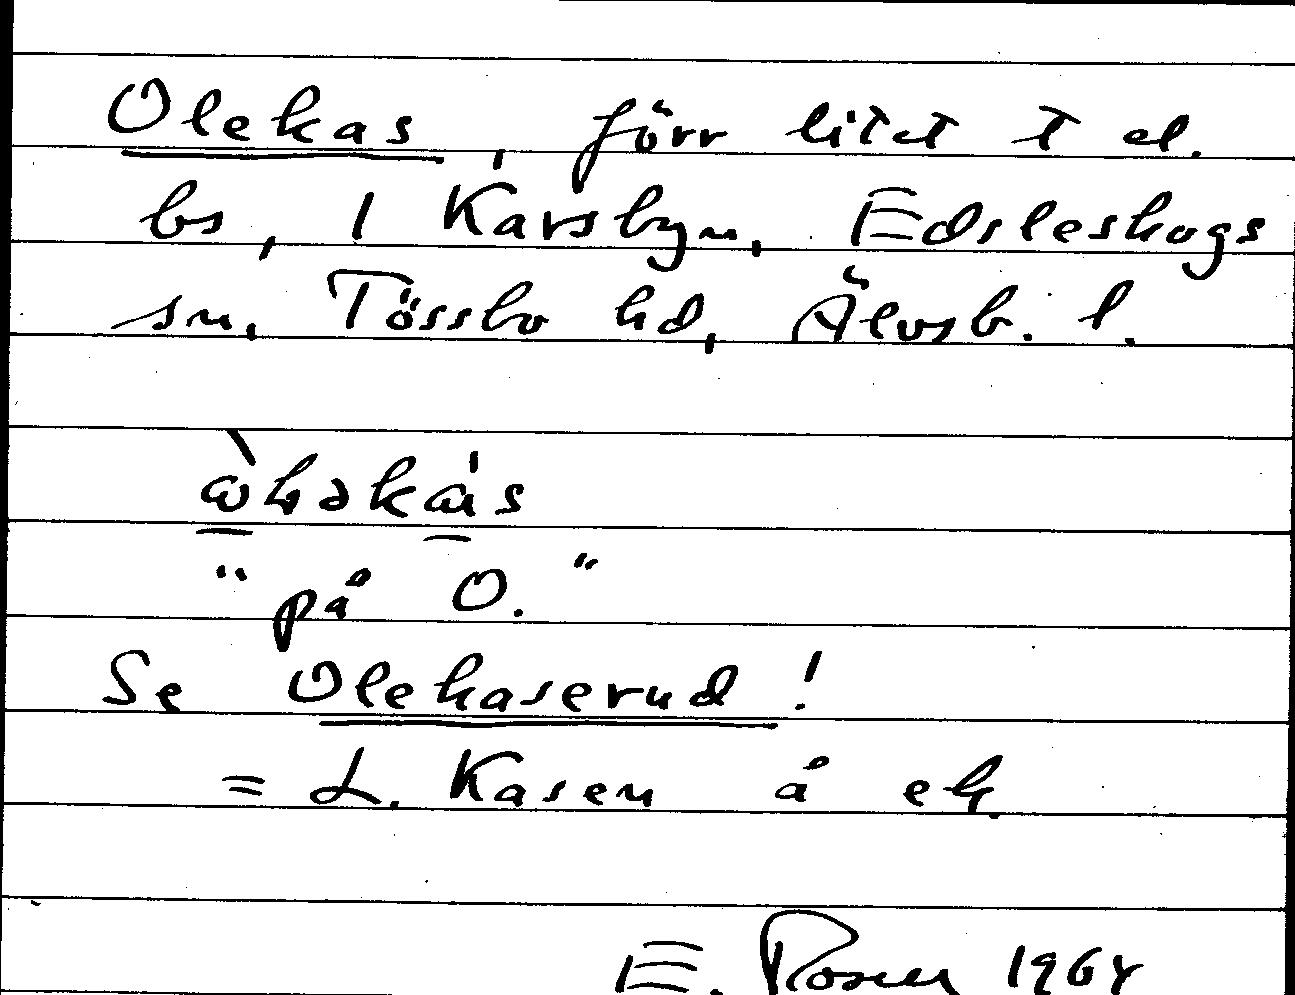 Olekas, förr litet t el.
bs, 1 Karsbyn, Edsleskogs
sn, Tössbo hd, Älvsb. l.
"på O."
Se Olekaserud!
= L. Kasen å ek
E. Rosell 1964